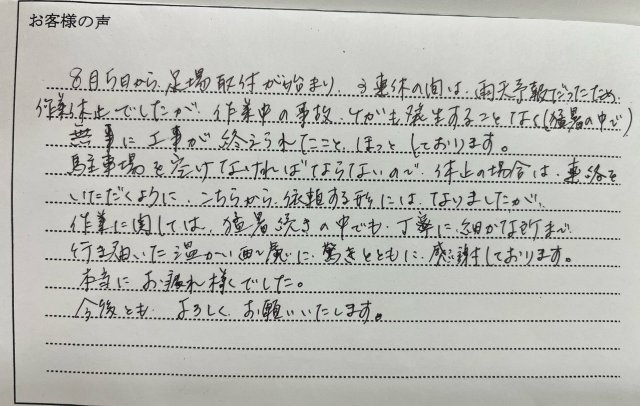 お客様の声
8月5日から足場取付が始まり、3連休の間は、雨天予報だったため
作業休止でしたが、作業中の事故、ケガも発生することなく(猛暑の中で)
無事に工事が終えられたこと、ほっとしております。
駐車場を空けなければならないので、休止の場合は、連絡を
いただくように、こちらから依頼する形にはなりましたが、
作業に関しては、猛暑続きの中でも、丁寧に細かな所まで
行き届いた温かい配慮に、驚きとともに、感謝しております。
本当にお疲れ様でした。
今後とも よろしくお願いいたします。